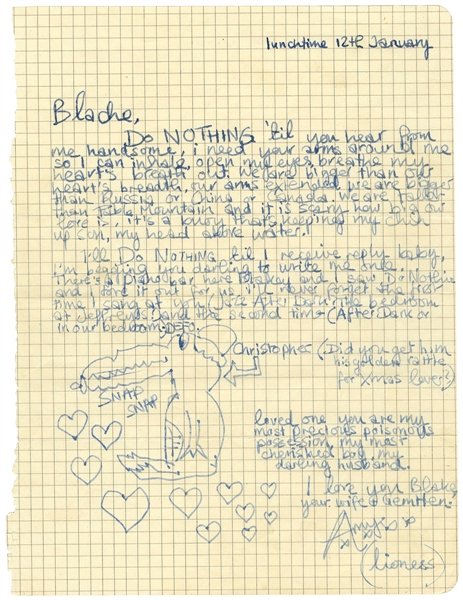 lunchtime 12th January
Blache,
Do NOTHING 'til you hear from
me handsome, i need your arms around me
so I can inhale, open my eyes, breathe my
heart's breath out. We are bigger than our
heart's breadth, our arms extended we are bigger
than Russia or China or Canada. We are taller
than Table Mountain and it is scary how big our
love is, it's a buoy that's keeping my chin
up son, my head above water!
I'll Do NOTHING 'til I receive reply baby,
i'm begging you darling to write me only.
There's a piano bar here Blake and we saw
and I tore it out for us i'll never forget the first
time I sang at you (Juice After Dark, the bedroom
at Jeffreys) and the second time (After Dark or
in our bedroom. DEFO.
Christopher (Did you get him
his golden rattle
for xmas lover?)
SNAP
SNAP
loved one you are my
most precious poisonous
possession, my most
cherished boy, my
darling husband.
I love you Blake,
your wife
Amy xxx
(lioness)